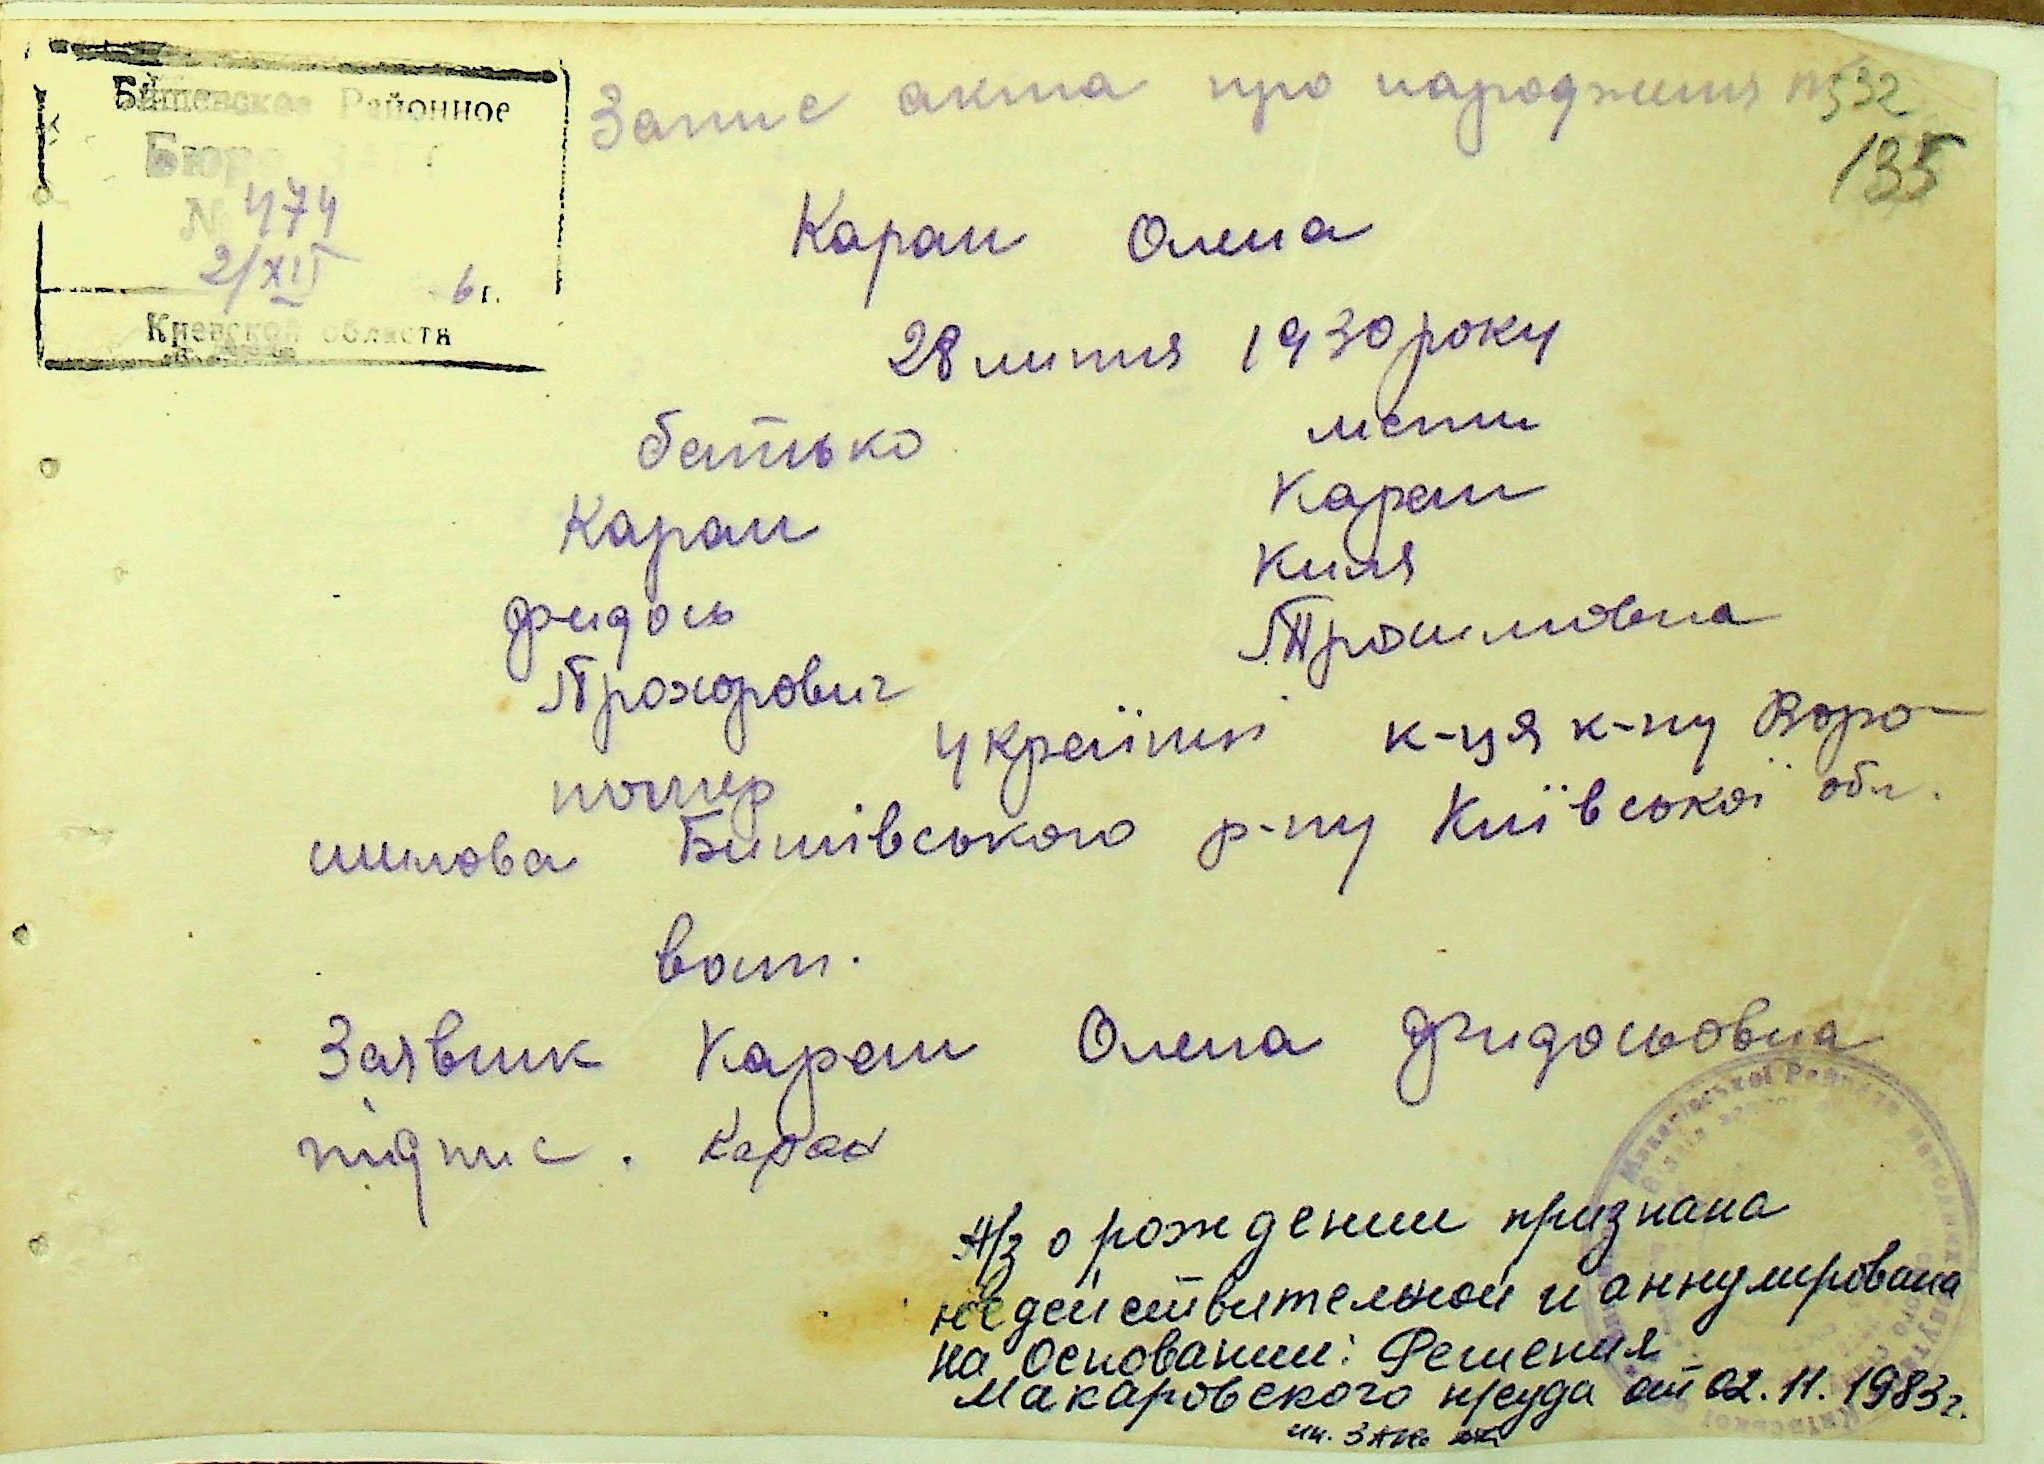 Бишевское Районное
Бюро ЗАГС
№ 474
2/XII 6 г.
Киевской области
Запис акта про народження № 332
135
Каран Олена
28 липня 1930 року
батько мати
Каран Каран
Фидось Киля
Прохорович Трохимовна
помер українці к-ця к-пу Воро-
шилова Бишівського р-ну Київської обл.
Заявник Каран Олена Фидосьовна
підпис. Каран
А/з о рождении признана
недействительной и аннулирована
на основании: Решения
Макаровского нрсуда от 02.11.1983 г.